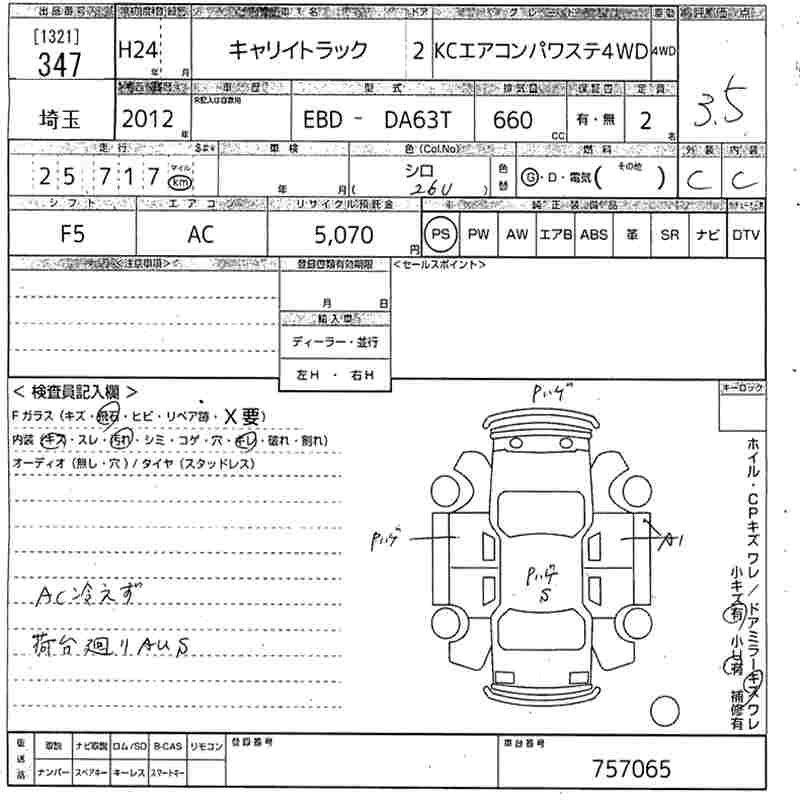 出品番号 初度登録 車名 ドア グレード 車歴 評価点
[1321]
347 H24 年 月 キャリイトラック 2 KCエアコンパワステ4WD 4WD 3.5
車歴 型式 排気量 保証書 定員
埼玉 2012 年 EBD - DA63T 660 CC 有・無 2 名
走行 車検 色(Col.No) 燃料 外装 内装
25717 マイル km 年 月 シロ ( 26U ) 色替 G・D・電気( その他 ) C C
シフト エアコン リサイクル預託金 純正装備品
F5 AC 5,070 円 PS PW AW エアB ABS 革 SR ナビ DTV
<注意事項> 登録書類有効期限 <セールスポイント>
月 日
輸入車
ディーラー・並行
左H ・ 右H
< 検査員記入欄 > キーロック
Fガラス (キズ・飛石・ヒビ・リペア跡・X要)
内装 (キズ・スレ・汚れ・シミ・コゲ・穴・キレ・破れ・割れ)
オーディオ (無し・穴) / タイヤ (スタッドレス)
Pハゲ
Pハゲ A1
Pハゲ
S
AC冷えず
荷台廻りAUS
ホイル・CPキズ ワレ / ドアミラーキズ ワレ
小キズ有 小U有 補修有
後送品 取説 ナビ取説 ロム/SD B-CAS リモコン 登録番号 車台番号
ナンバー スペアキー キーレス スマートキー 757065